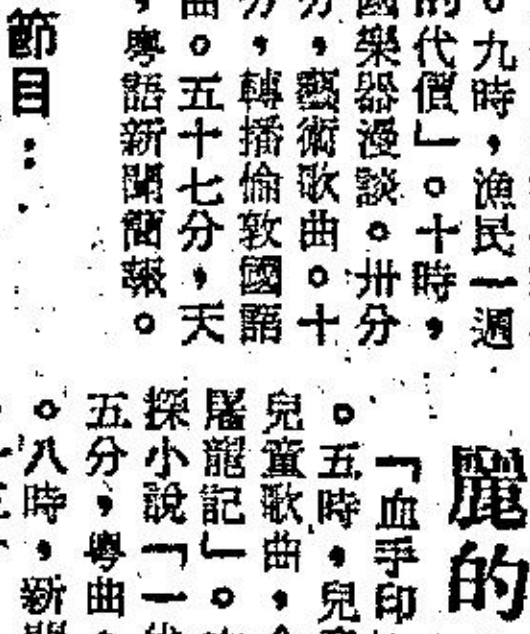 。九時，漁民一週
的代價」。十時，
國樂器漫談。卅分
分，藝術歌曲。十
分，轉播倫敦國語
曲。五十七分，天
，粵語新聞簡報。
節目：
麗的
「血手印
。五時，兒
兒童歌曲，
屠龍記」。
探小說「一
五分，粵曲
。八時，新